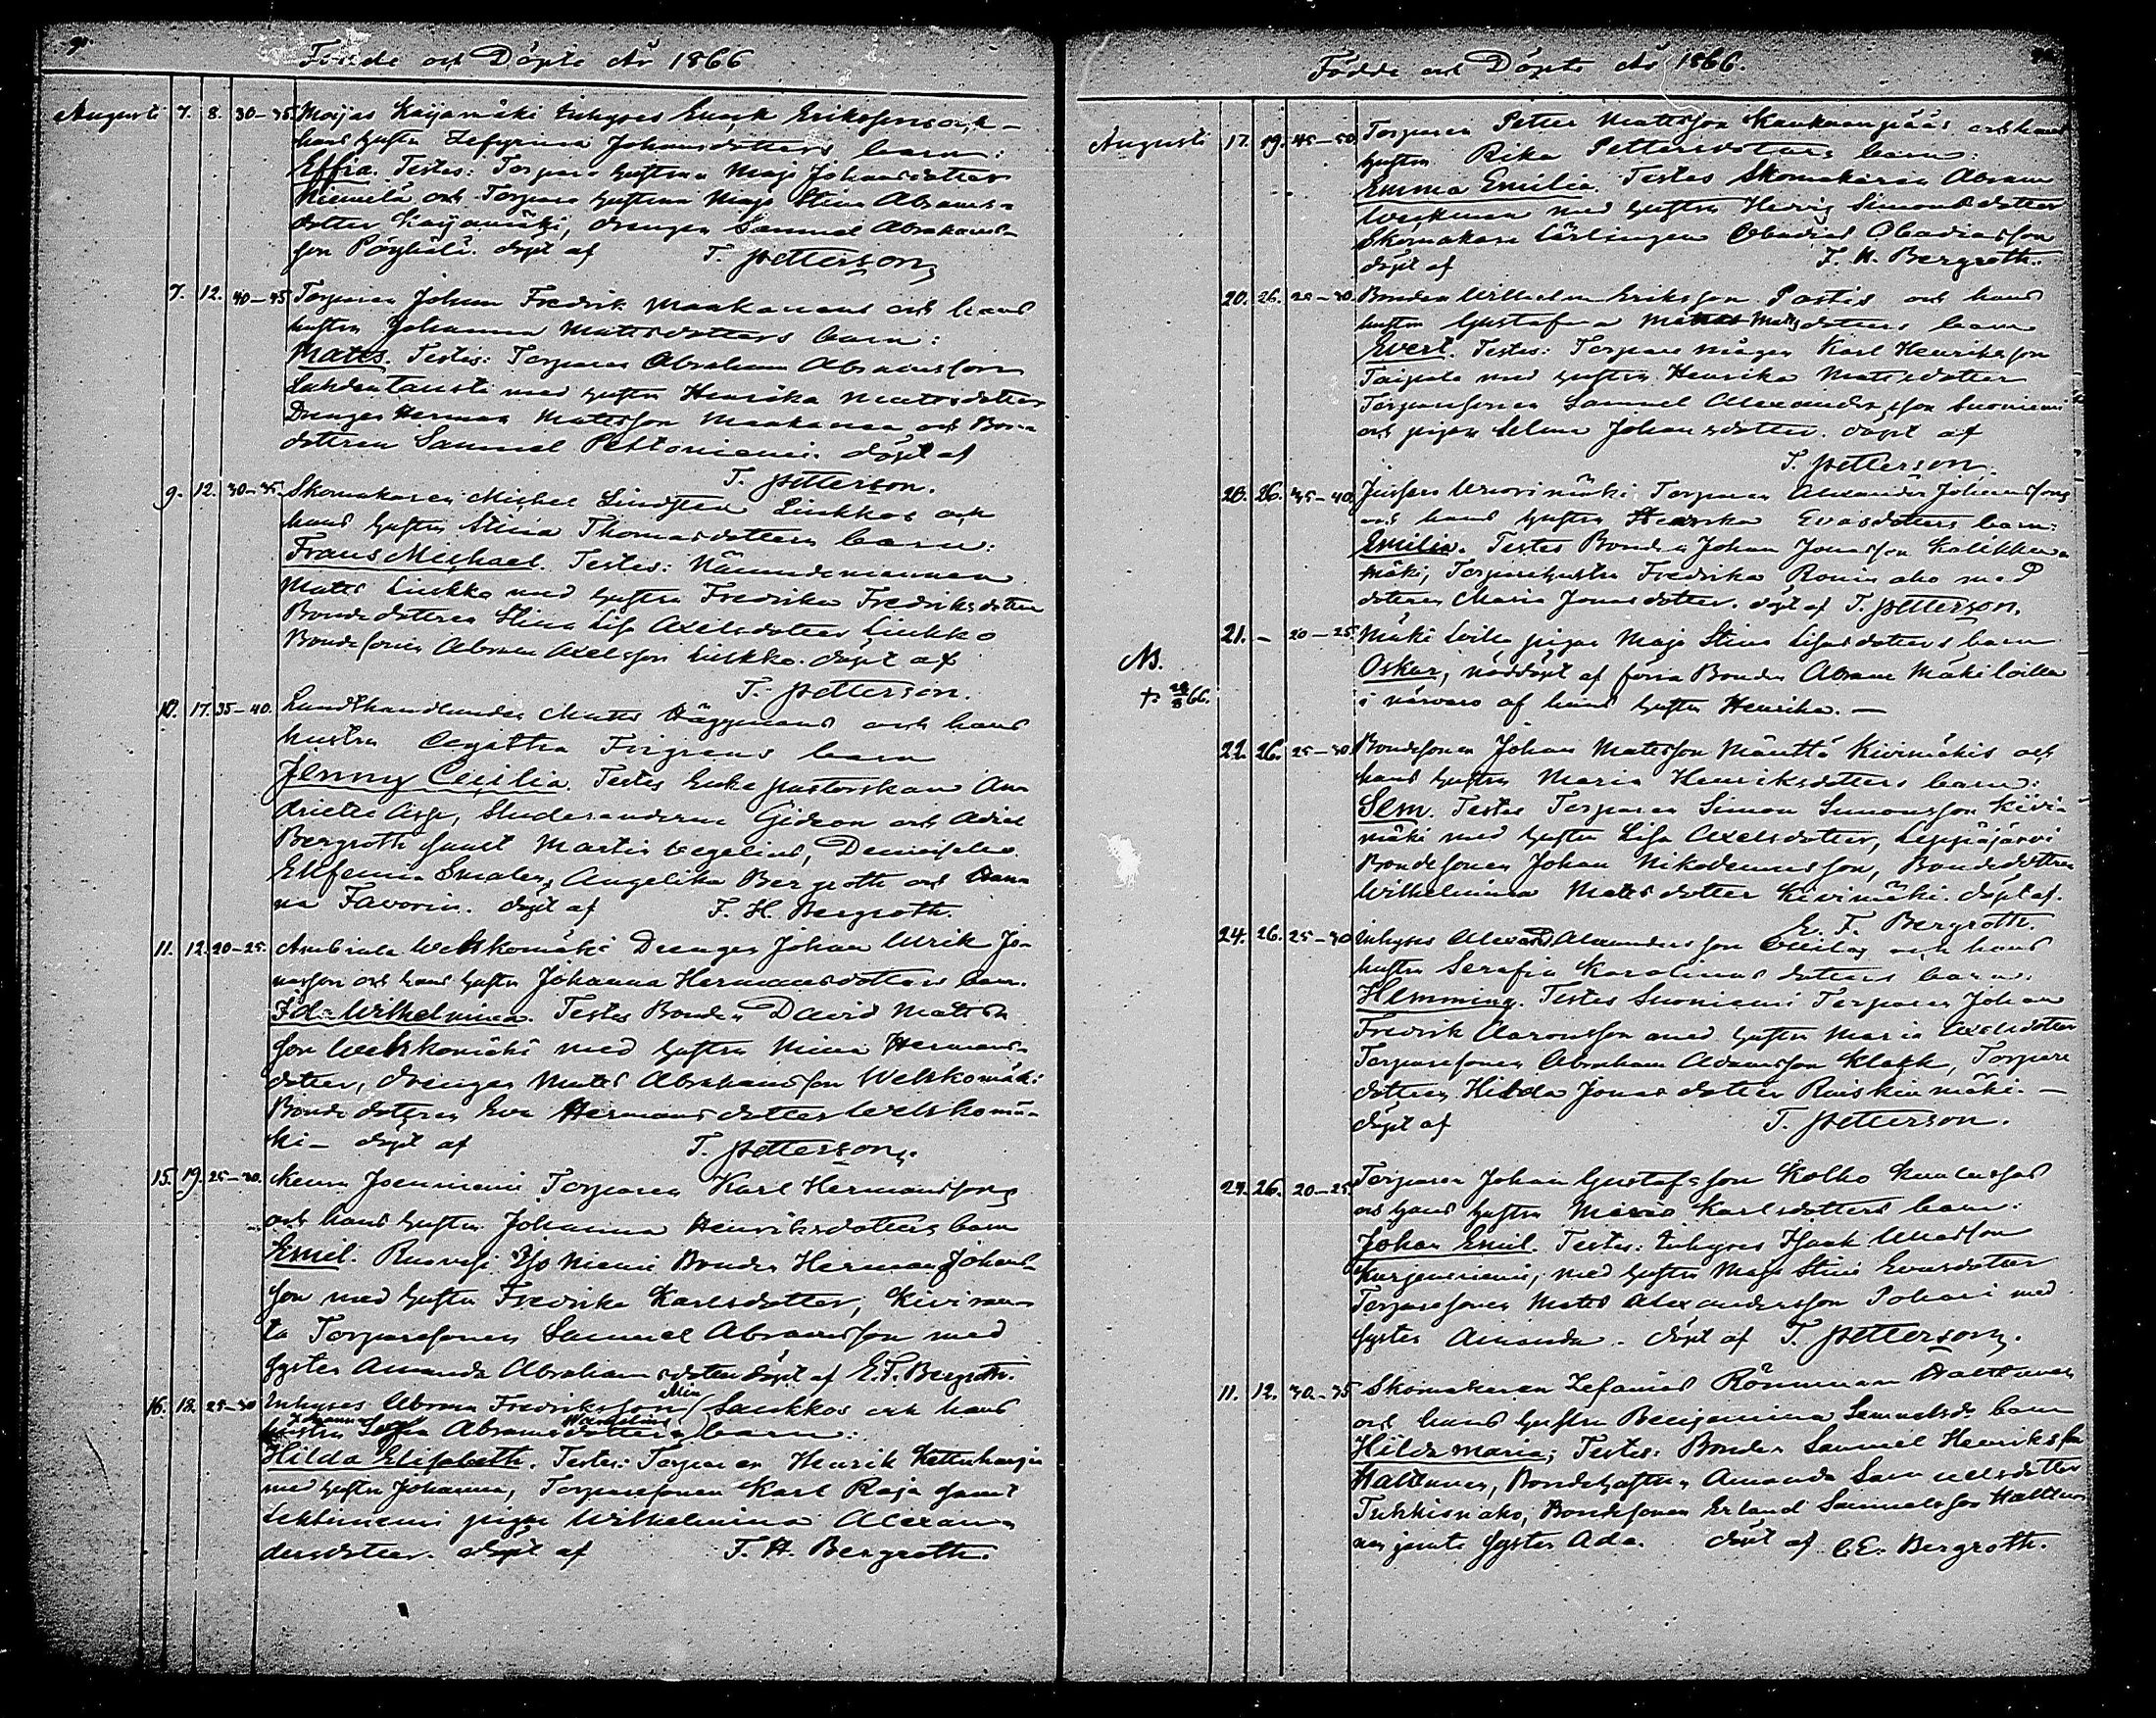 Födde och Döpte År 1866
Augusti 7. 8. 30-35 Maijas Kaijamäki Inhyses Enock Erikssons och
hans hustru Zefyrina Johansdotters barn:
Effia. Testes: Torpare hustrun Maja Johansdotter
Niemelä och Torpare hustrun Maja Stina Abrams-
dotter Kaijamäki, drengen Samuel Abrahams-
son Pöyhölä. döpt af T. Petterson
7. 12. 40-45 Torparen Johan Fredrik Maakanans och hans
hustru Johanna Mattsdotters barn:
Matts. Testes: Torparen Abraham Abramsson
med hustru Henrika Mattsdotter
Drengen Herman Mattsson Maakanaa och Bon-
Samuel Peltoniemi. döpt af
T. Petterson.
9. 12. 30-35 Skomakaren Michel Lindsten Liukkos och
hans hustru Stina Thomasdotters barn:
Frans Michael. Testes: Nämndemannen
Matts Liukko med hustru Fredrika Fredriksdotter
Bondedottren Stina Lisa Axelsdotter Liukko
Bondesonen Abram Axelsson Liukko. döpt af
T. Petterson.
10. 17. 35-40. Landthandlanden Matts Häggmans och hans
hustru Agatha barn
Jenny Cecilia. Testes Enkepastorskan
Asp, Studeranderne Gideon och
Bergroth samt Martin Wegelius,
Angelika Bergroth och Han-
na Favorin. döpt af F. H. Bergroth.
11. 12. 20-25. Ambriala Welskomäki Drengen Johan Ulrik Jo-
nasson och hans hustru Johanna Hermansdotters barn.
Ida Wilhelmina. Testes Bonden David Matts-
son Welskomäki med hustru Mina Hermans-
dotter, drengen Matts Abrahamsson Welskomäki
Bondedottren Eva Hermansdotter Welskomä-
ki- döpt af T. Petterson.
15. 19. 25-30. Joenniemi Torparen Karl Hermanssons
och hans hustru Johanna Henriksdotters barn
Emil. Ruovesi Iso Niemi Bonden Herman Johans-
son med hustru Fredrika Karlsdotter, Kiviran-
ta Torparesonen Samuel Abramsson med
syster Amanda Abrahamsdotter döpt af E. F. Bergroth.
16. 18. 25-30 Inhyses Abram Fredriksson Saukkos och hans
hustru Johanna Abramsdotters barn:
Hilda Elisabeth. Testes: Torparen Henrik Kettuharju
med hustru Johanna, Torparesonen Karl Raja samt
Lehtiniemi pigan Wilhelmina Alexan-
dersdotter. döpt af F. H. Bergroth.
Födde och Döpte År 1866.
Augusti 17. 19. 45-50 Torparen Petter Mattsson Kaukaanpääs och hans
hustru Rika Pettersdotters barn:
Emma Emilia. Testes Skomakaren Abram
Weckman med hustru Hedvig Simonsdotter
Skomakare Lärlingen Obadias Obadiasson
döpt af F. H. Bergroth.
20. 26. 25-30. Bonden Wilhelm Eriksson Pastis och hans
hustru Gustafva Mattsdotters barn
Evert. Testes: Torpare mågen Karl Henriksson
Taipale med hustru Henrika Mattsdotter
Torparesonen Samuel Alexandersson Suoniemi
och pigan Selma Johansdotter. döpt af
T. Petterson.
20. 26. 35-40. Juhsars Wuorimäki Torparen Alexander Johanssons
och hans hustru Henrika Evasdotters barn:
Emilia. Testes Bonden Johan Jonasson
mäki, Torparehustru Fredrika Roniaho med
dottren Maria Jonasdotter. döpt af T. Petterson.
21. - 20-25. Mäki Loilla, pigan Maja Stina Lisasdotters barn
Oskar, nöddöpt af förra Bonden Abram Mäki Loilla
i närvaro af hans hustru Henrika. —
NB.
66.
22. 26. 25-30 Bondesonen Johan Mattsson Mänttä Kivimäkis och
hans hustru Maria Henriksdotters barn:
Sem. Testes Torparen Simon Simonsson Kivi-
mäki med hustru Lisa Axelsdotter, Leppäjärvi
Bondesonen Johan Nikodemusson, Bondedottren
Wilhelmina Mattsdotter Kivimäki. döpt af.
E. F. Bergroth.
24. 26. 25-30 Inhyses Alexand. Alexandersson och hans
hustru Serafia Karolinasdotters barn:
Hemming. Testes Suoniemi Torparen Johan
Fredrik Aaronsson med hustru Maria Axelsdotter
Torparesonen Abraham Adamsson Klapp, Torpare
dottren Hilda Jonasdotter Ruiskinmäki. —
döpt af T. Petterson.
24. 26. 20-25. Torparen Johan Gustafsson Kolho
och hans hustru Maria Karlsdotters barn:
Johan Emil. Testes: Inhyses Isaak
Kurjenniemi, med hustru Maja Stina Evasdotter
Torparesonen Matts Alexandersson Pohari med
syster Amanda. döpt af T. Petterson.
11. 12. 30-35 Skomakaren Zefanias Rönnman Haltunen
och hans hustru Benjamina Samuelsd. barn
Hilda Maria; Testes: Bonden Samuel Henriksson
Haltunen, Bondehustrun Amanda Samuelsdotter
Tukkisnaho, Bondesonen Erland Samuelsson Haltu-
nen jemte syster Ada. döpt af C. E. Bergroth.